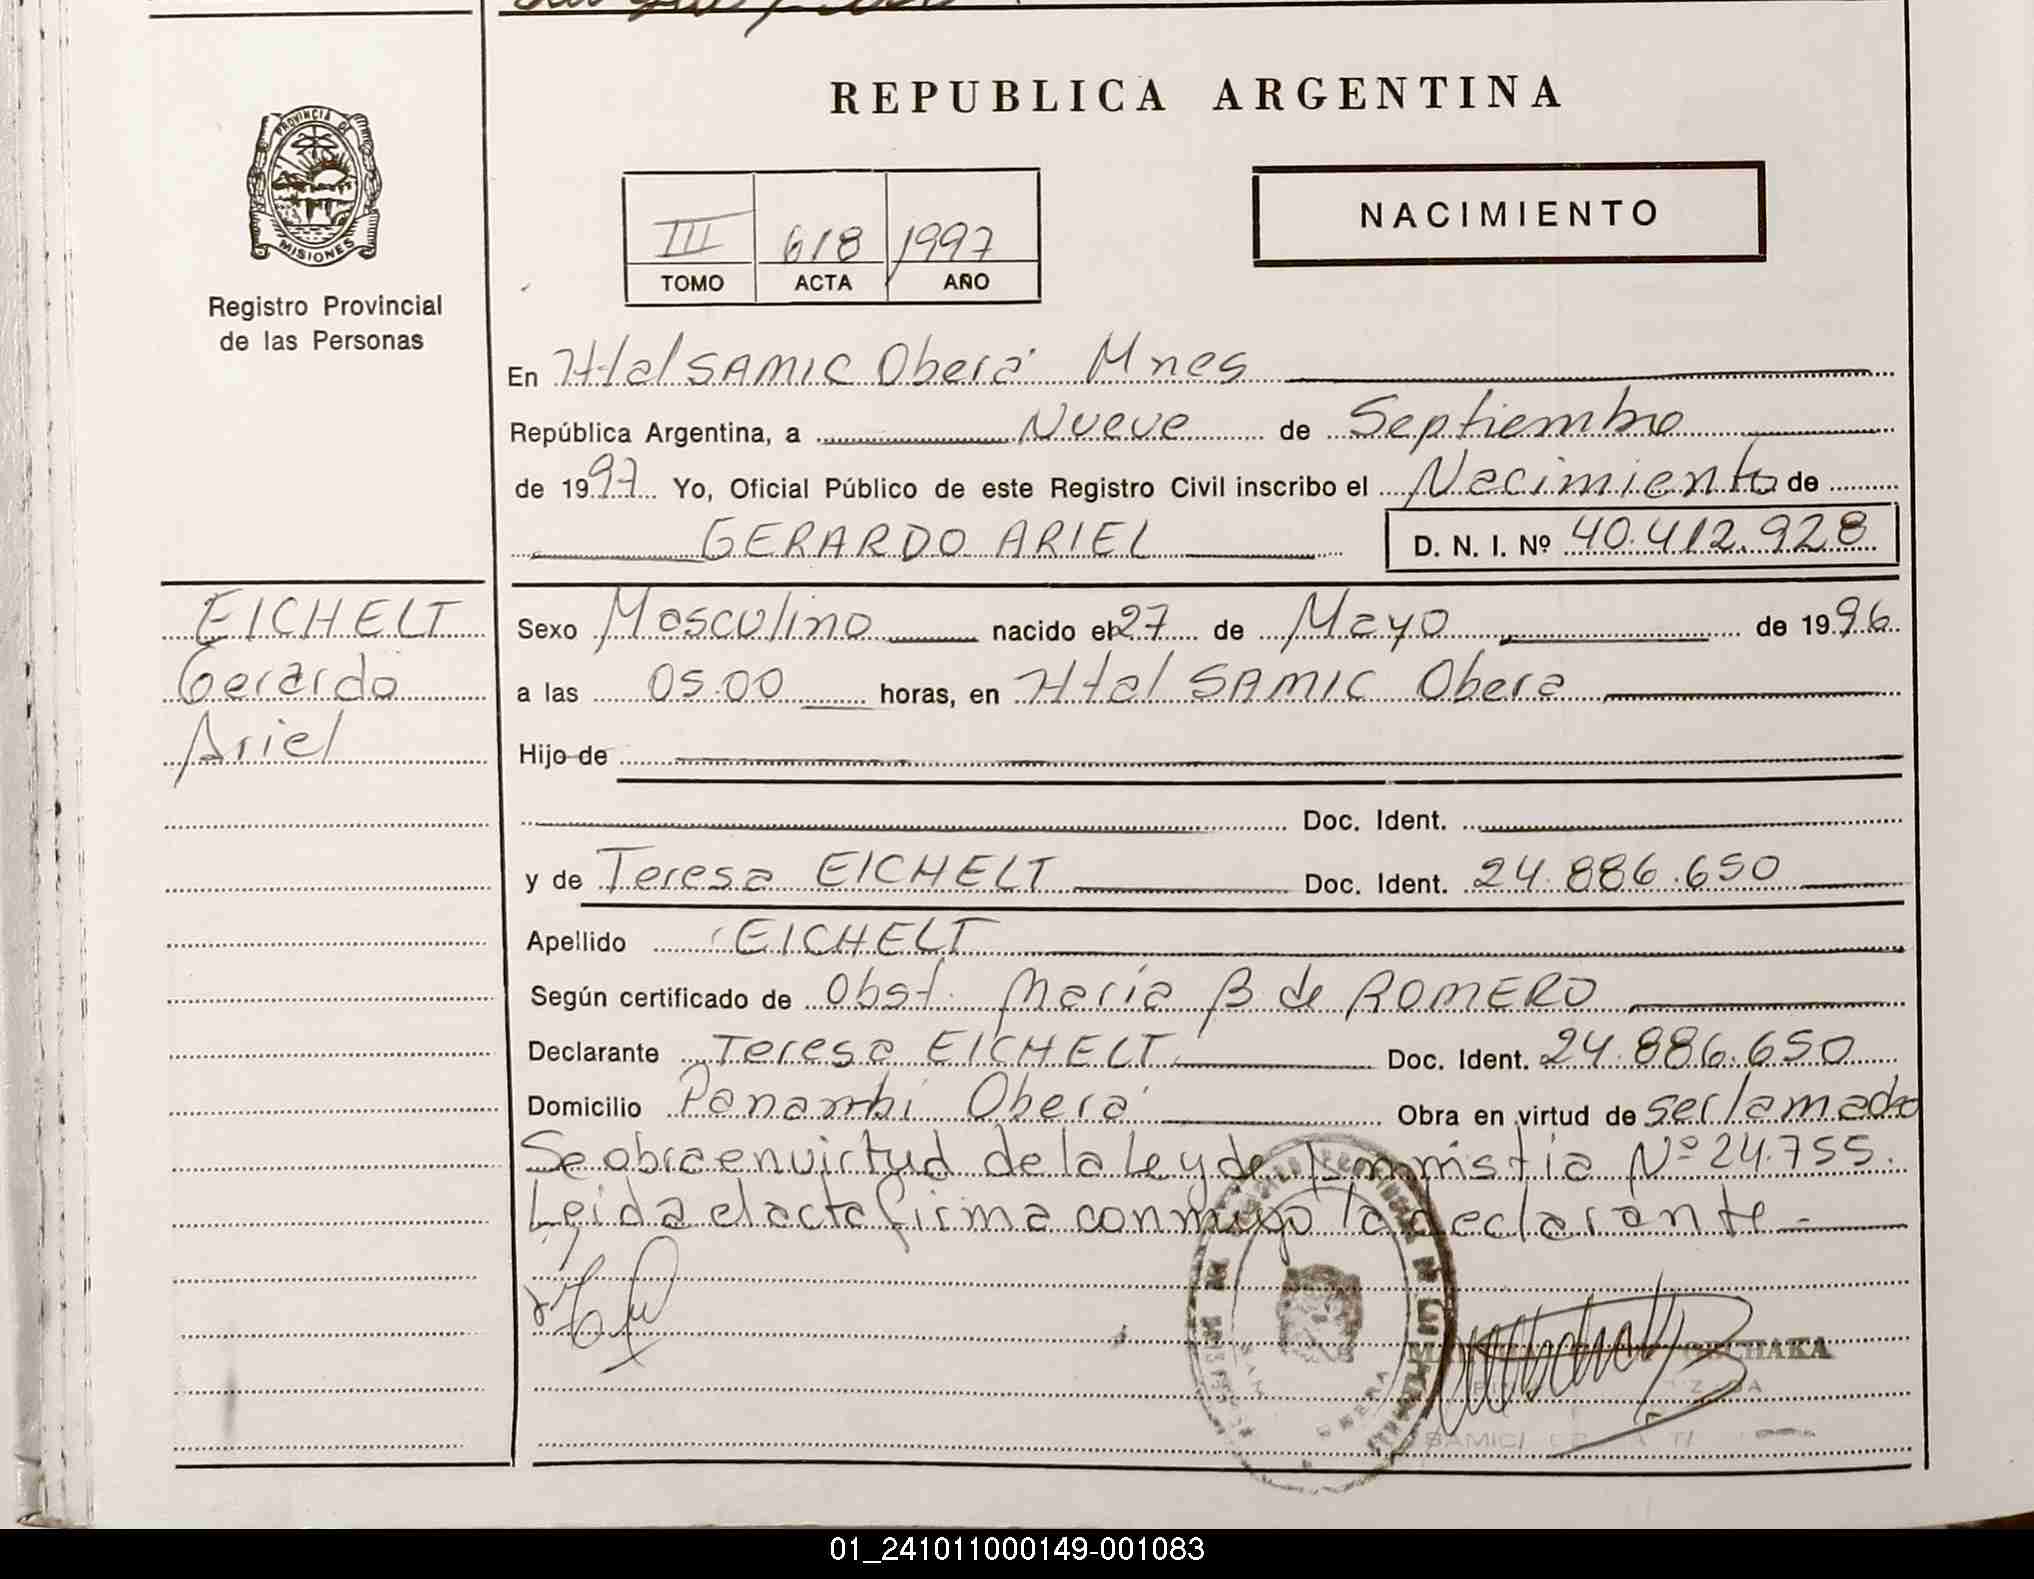 REPUBLICA ARGENTINA
PROVINCIA DE
MISIONES
Registro Provincial
de las Personas
III 618 1997
TOMO ACTA AÑO
NACIMIENTO
En Htal SAMIC Oberá Mnes
República Argentina, a Nueve de Septiembre
de 1997 Yo, Oficial Público de este Registro Civil inscribo el Nacimiento de
GERARDO ARIEL D. N. I. Nº 40.412.928
EICHELT
Gerardo
Ariel
Sexo Masculino nacido el 27 de Mayo de 1996
a las 05.00 horas, en Htal SAMIC Obera
Hijo de
Doc. Ident.
y de Teresa EICHELT Doc. Ident. 24.886.650
Apellido EICHELT
Según certificado de Obst. María B de ROMERO
Declarante Teresa EICHELT Doc. Ident. 24.886.650
Domicilio Panambi Oberá Obra en virtud de ser la madre
Se obra en virtud de la Ley de Ammistia Nº 24.755.
Leida el acta firma conmigo la declarante -
OBERA
SAMIC
01_241011000149-001083